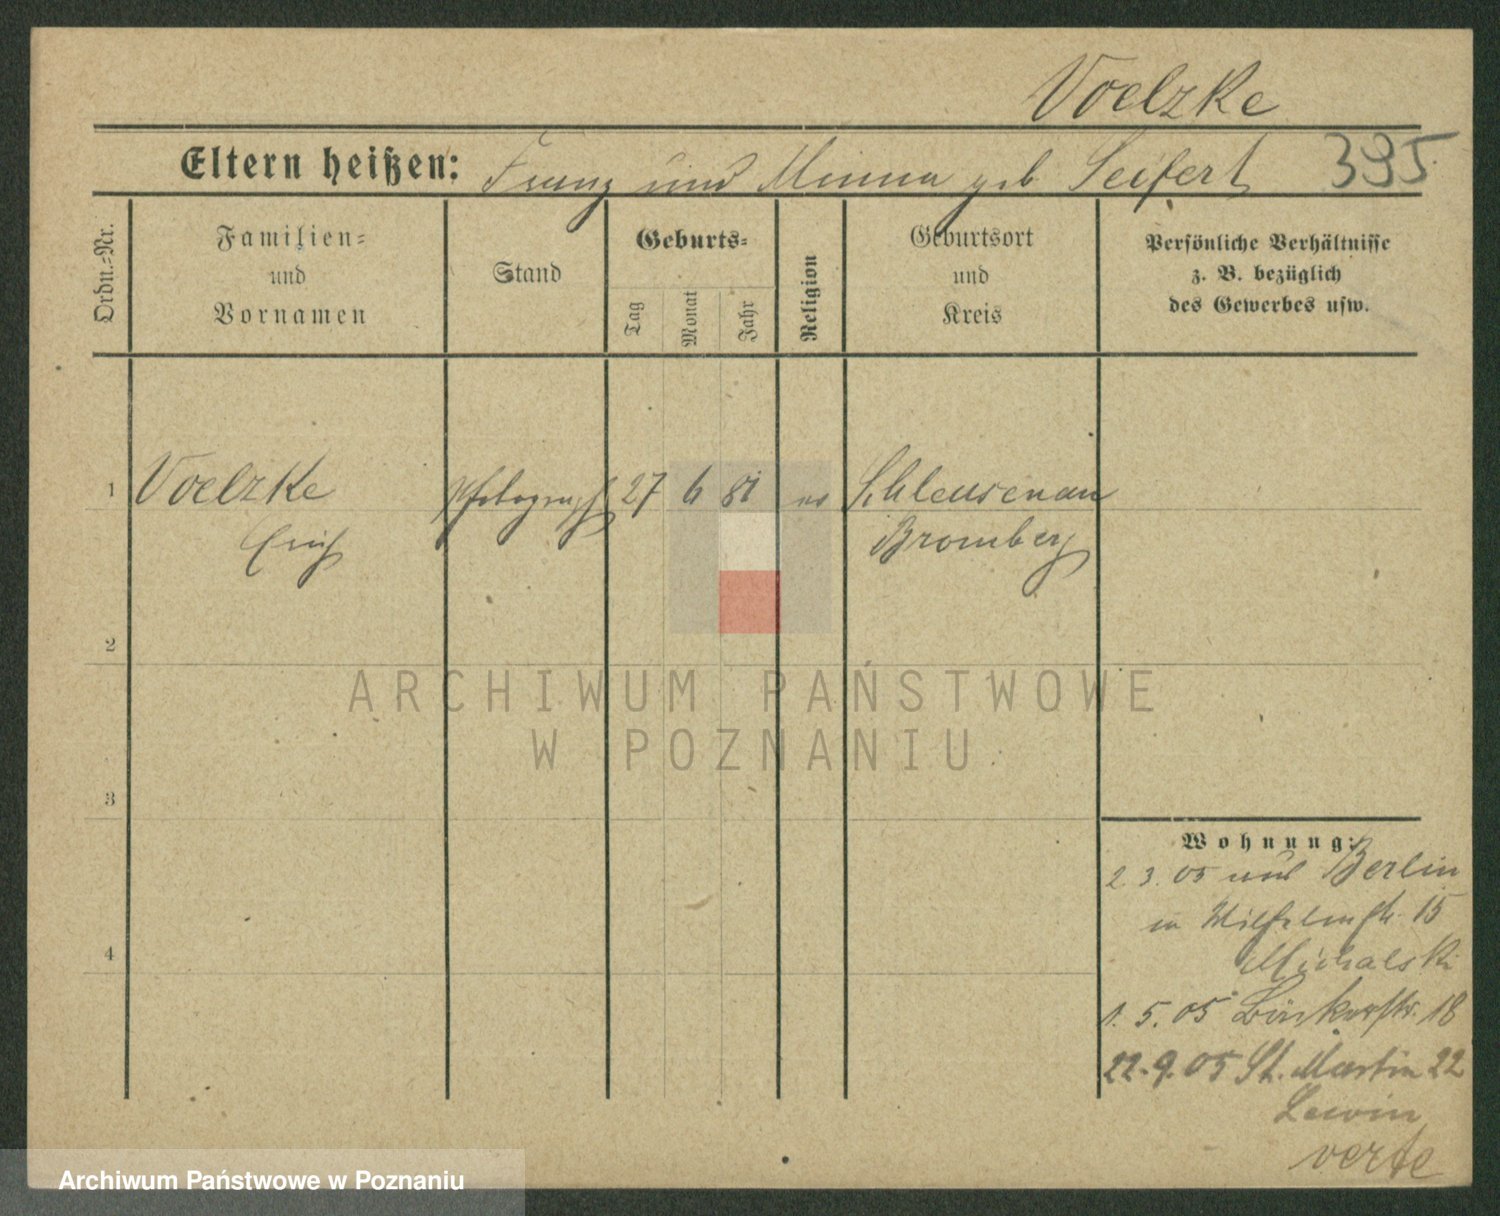 Voelzke
Eltern heißen: Franz und Minna geb Seifert 395
Ordn.-Nr.
Familien-
und
Vornamen
Stand
Geburts-
Tag
Monat
Jahr
Religion
Geburtsort
und
Kreis
Persönliche Verhältnisse
z. B. bezüglich
des Gewerbes usw.
1 Voelzke Photograph 27 6 81 ev Schleusenau
Erich Bromberg
2
3
4
Wohnung:
2 3. 05 aus Berlin
in Wilhelmstr. 15
Michalski
1. 5. 05 18
22. 9. 05 St. Martin 22
Lewin
verte
ARCHIWUM PAŃSTWOWE
W POZNANIU
Archiwum Państwowe w Poznaniu